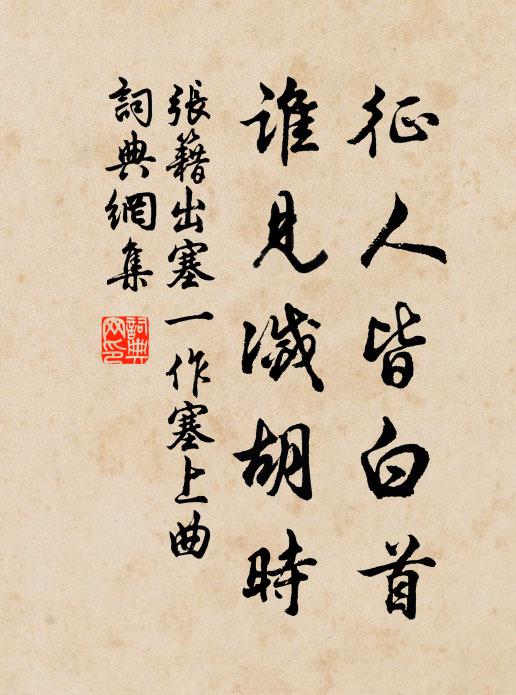 征人皆白首
誰見滅胡時
張籍出塞一作塞上曲
詞典網集
詞典網印